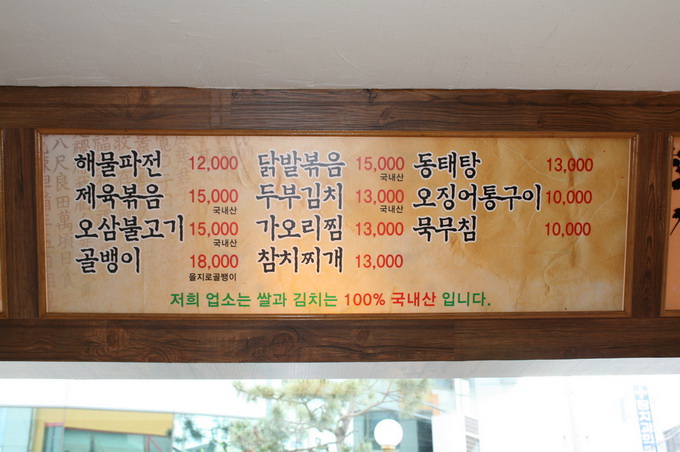 해물파전 12,000
제육볶음 15,000
국내산
오삼불고기 15,000
국내산
골뱅이 18,000
을지로골뱅이
닭발볶음 15,000
국내산
두부김치 13,000
국내산
가오리찜 13,000
참치찌개 13,000
동태탕 13,000
오징어통구이 10,000
묵무침 10,000
저희 업소는 쌀과 김치는 100% 국내산 입니다.